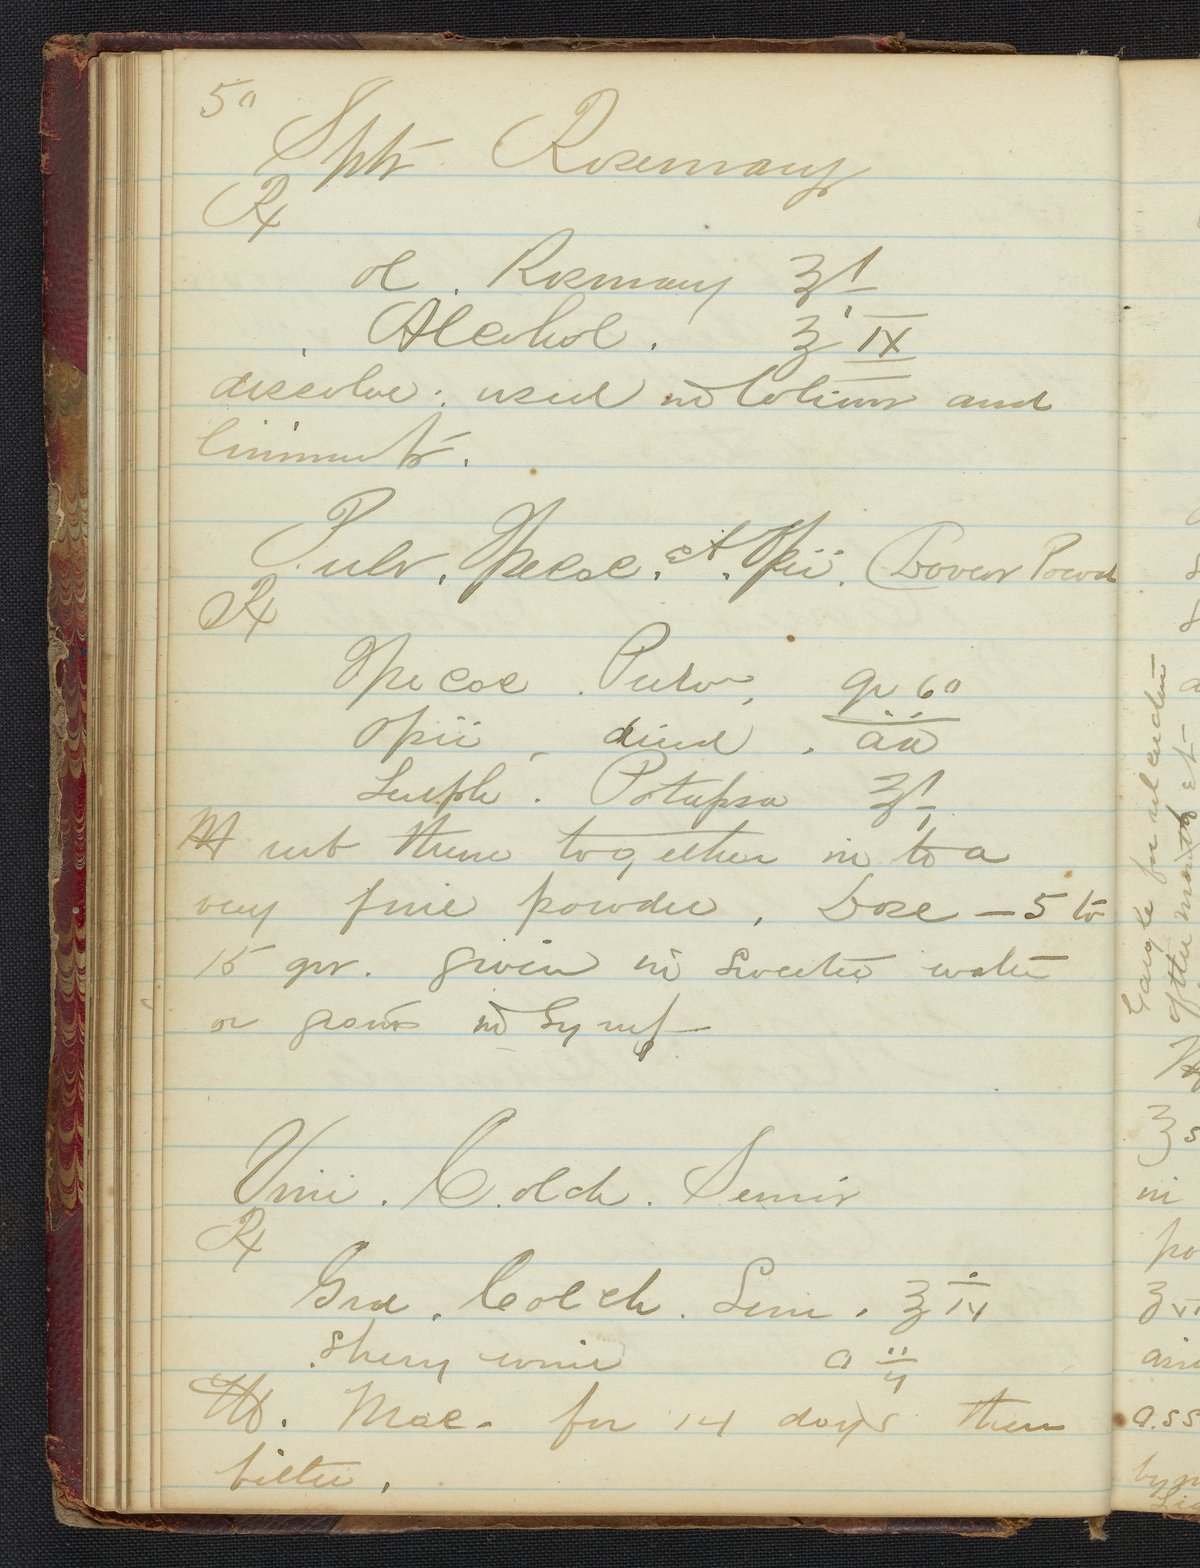 50
Spts Rosemary
℞
ol. Rosmary ʒ i
Alcohol. ʒ ix
dissolve. used in lotions and
liniments.
Pulv. Ipecac. et. Opii. (Dovers Powd
℞
Ipecac. Pulv. gr 60
Opii dried. aa
Sulph. Potassa ℥ i
M rub them together in to a
very fine powder. Dose – 5 to
15 gr. given in sweeten water
or given in Syrup
Vini. Colch. Semir
℞
Grd. Colch. Sem. ℥ iv
Sherry wine O ii
M. Mac. for 14 days then
filter.
Gargle for ulcerated